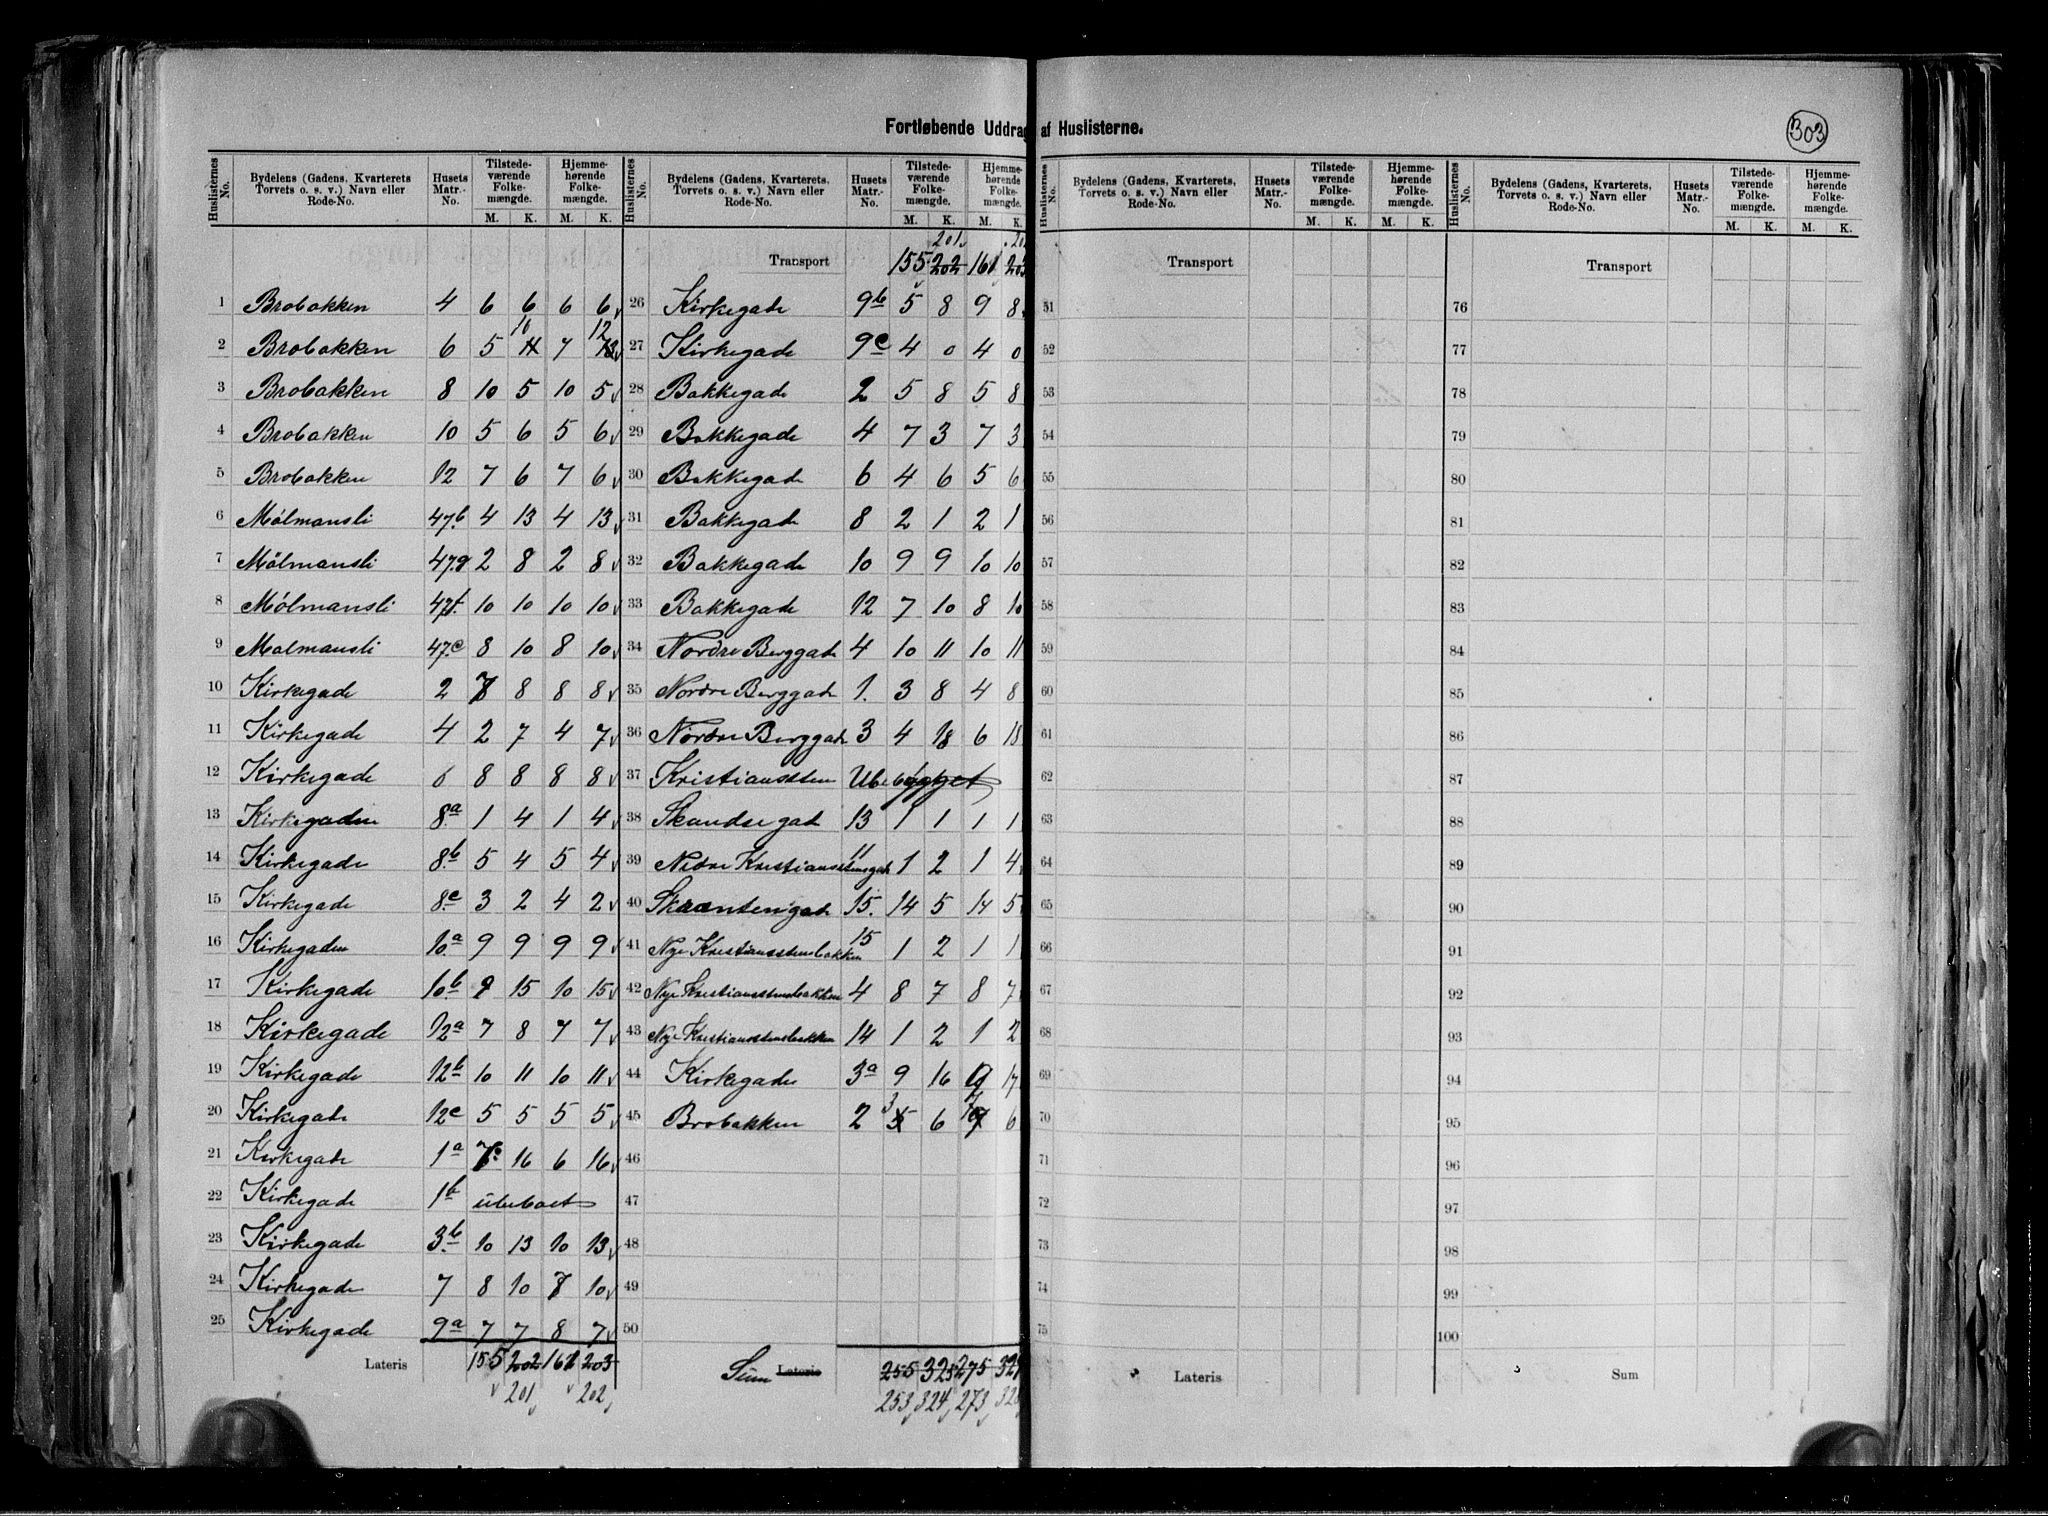 Fortløbende Uddrag af Huslisterne.
303
Huslisternes No. | Bydelens (Gadens, Kvarterets, Torvets o. s. v.) Navn eller Rode-No. | Husets Matr.-No. | Tilstedeværende Folkemængde. M. K. | Hjemmehørende Folkemængde. M. K.
1 Brobakken 4 6 6 6 6
2 Brobakken 6 5 10 7 12
3 Brobakken 8 10 5 10 5
4 Brobakken 10 5 6 5 6
5 Brobakken 12 7 6 7 6
6 Mølmansli 47b 4 13 4 13
7 Mølmansli 47g 2 8 2 8
8 Mølmansli 47f 10 10 10 10
9 Mølmansli 47c 8 10 8 10
10 Kirkegade 2 7 8 8 8
11 Kirkegade 4 2 7 4 7
12 Kirkegade 6 8 8 8 8
13 Kirkegaden 8a 1 4 1 4
14 Kirkegade 8b 5 4 5 4
15 Kirkegade 8c 3 2 4 2
16 Kirkegaden 10a 9 9 9 9
17 Kirkegade 10b 9 15 10 15
18 Kirkegade 12a 7 8 7 7
19 Kirkegade 12b 10 11 10 11
20 Kirkegade 12c 5 5 5 5
21 Kirkegade 1a 7 16 6 16
22 Kirkegade 1b ubeboet
23 Kirkegade 3b 10 13 10 13
24 Kirkegade 7 8 10 7 10
25 Kirkegade 9a 7 7 8 7
Lateris 155 202 161 203
201 202
Huslisternes No. | Bydelens (Gadens, Kvarterets, Torvets o. s. v.) Navn eller Rode-No. | Husets Matr.-No. | Tilstedeværende Folkemængde. M. K. | Hjemmehørende Folkemængde. M. K.
201
Transport 155 202 161
26 Kirkegade 9b 5 8 9 8
27 Kirkegade 9c 4 0 4 0
28 Bakkegade 2 5 8 5 8
29 Bakkegade 4 7 3 7 3
30 Bakkegade 6 4 6 5 6
31 Bakkegade 8 2 1 2 1
32 Bakkegade 10 9 9 10 10
33 Bakkegade 12 7 10 8 10
34 Nordre Berggade 4 10 11 10 11
35 Nordre Berggade 1. 3 8 4 8
36 Nordre Berggade 3 4 18 6 18
37 Kristianssten Ubebygget
38 Skandsegade 13 1 1 1 1
39 Nedre Kristianstensgade 11 1 2 1 4
40 Skrænten gade 15. 14 5 14 5
41 Nye Kristianstensbakken 15 1 2 1 1
42 Nye Kristianstensbakken 4 8 7 8 7
43 Nye Kristianstensbakken 14 1 2 1 2
44 Kirkegade 3a 9 16 9 17
45 Brobakken 2 3 6 7 6
46
47
48
49
50
Sum Lateris 255 325 275
253 324 273
Huslisternes No. | Bydelens (Gadens, Kvarterets, Torvets o. s. v.) Navn eller Rode-No. | Husets Matr.-No. | Tilstedeværende Folkemængde. M. K. | Hjemmehørende Folkemængde. M. K.
Transport
51
52
53
54
55
56
57
58
59
60
61
62
63
64
65
66
67
68
69
70
71
72
73
74
75
Lateris
Huslisternes No. | Bydelens (Gadens, Kvarterets, Torvets o. s. v.) Navn eller Rode-No. | Husets Matr.-No. | Tilstedeværende Folkemængde. M. K. | Hjemmehørende Folkemængde. M. K.
Transport
76
77
78
79
80
81
82
83
84
85
86
87
88
89
90
91
92
93
94
95
96
97
98
99
100
Sum